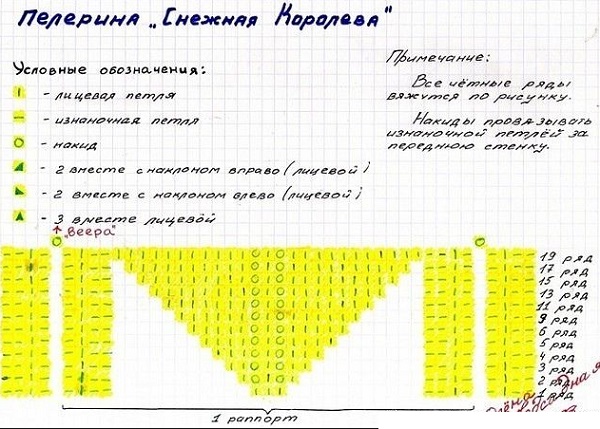 Пелерина „Снежная Королева"
Условные обозначения:
- лицевая петля
- изнаночная петля
- накид
- 2 вместе с наклоном вправо (лицевой)
- 2 вместе с наклоном влево (лицевой)
- 3 вместе лицевой
Примечание:
Все чётные ряды
вяжутся по рисунку.
Накиды провязывать
изнаночной петлёй за
переднюю стенку.
"веера"
19 ряд
17 ряд
15 ряд
13 ряд
11 ряд
9 ряд
6 ряд
5 ряд
4 ряд
3 ряд
2 ряд
1 ряд
1 раппорт